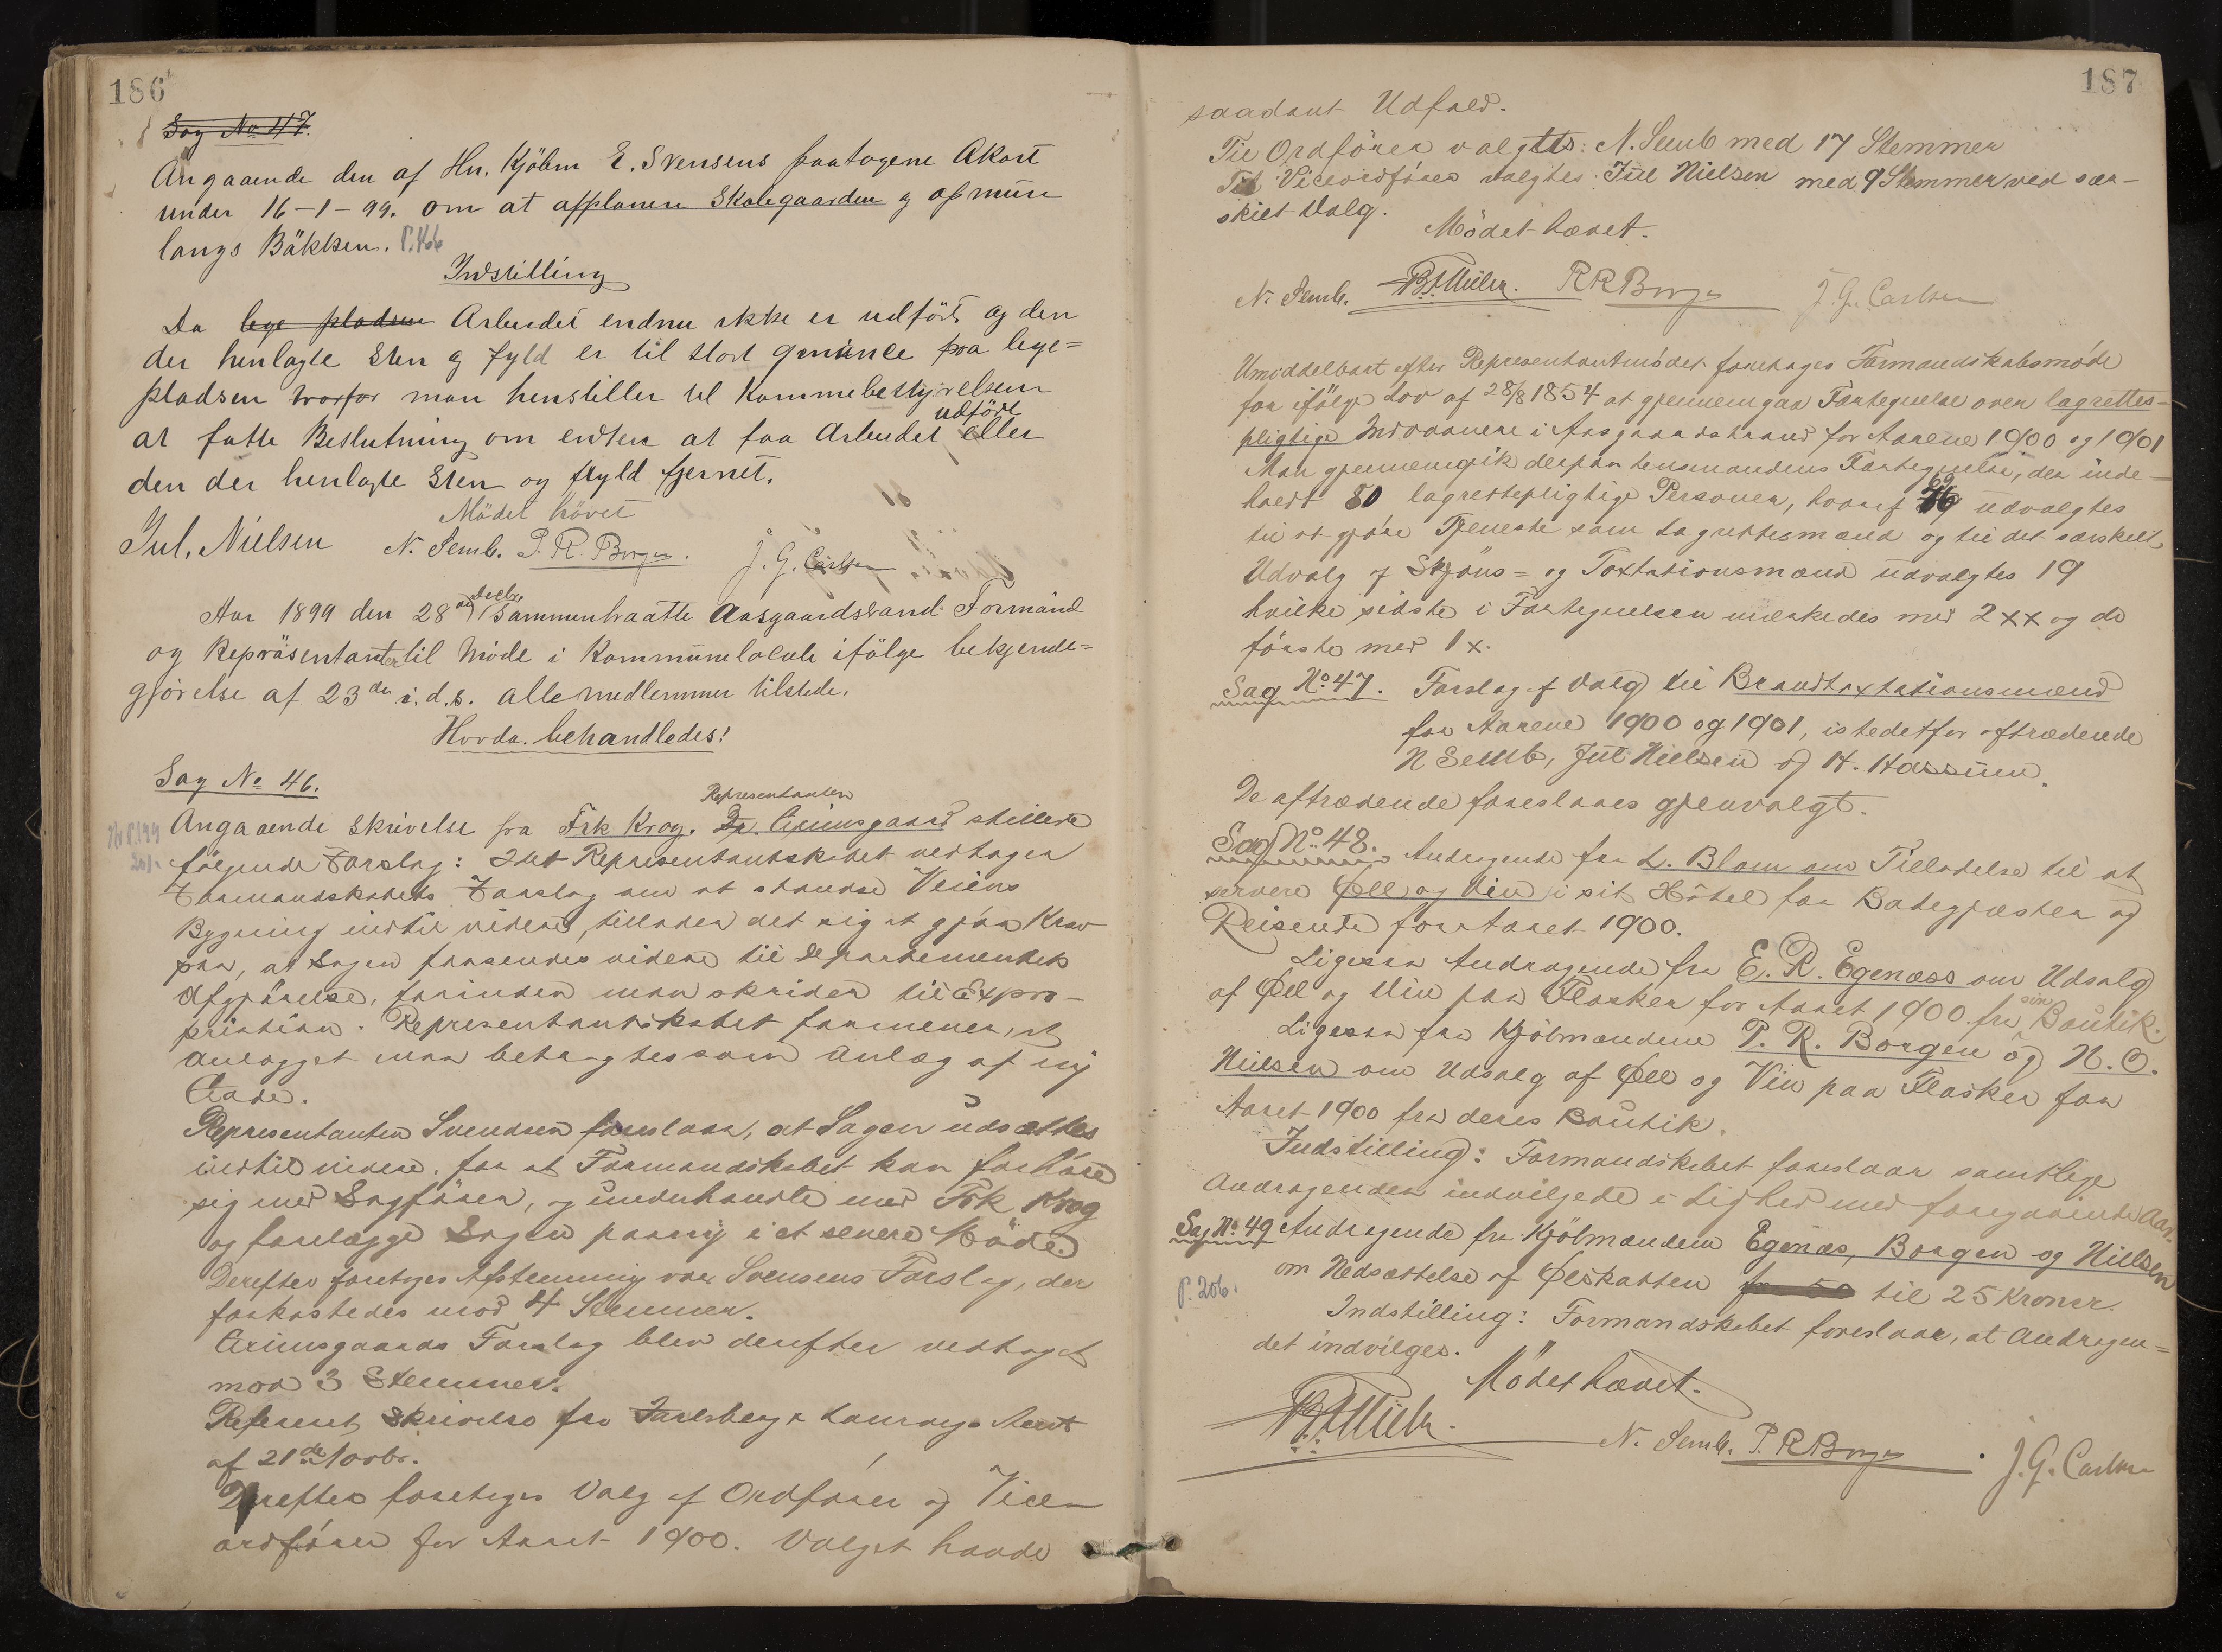 186
Sag No 47.
Angaaende den af Hn. Kjöbm E. Svensens paatagene Akort
under 16-1-99. om at afplanere Skolegaarden og opmure
langs Bäkken.
Indstilling
Da lege pladsen Arbeidet endnu ikke er udfört og den
der henlagte Sten og fyld er til stort paa lege=
pladsen hvorfor man henstiller til Kommebestyrelsen
udfört
at fatte Beslutning om enten at faa Arbeidet eller
den der henlagte Sten og fyld fjernet.
Mödet hövet
Jul. Nielsen N. Semb. P. R. Borgen. J. G. Carlsen
Decbr
Aar 1899 den 28de Sammentraatte Aasgaardstrand Formænd
og Repräsentanter til Möde i Kommunelocale ifölge bekjendt=
gjörelse af 23de i.d.s. alle medlemmer tilstede.
Hvorda. behandledes!
Sag No 46.
Representanten
Angaaende Skrivelse fra Frk Krog. Grimsgaard stillede
fölgende Forslag: Idet Representantskabet vedtager
Formandskabets Forslag om at standse Veiens
Bygning indtil videre, tillader det sig at gjöre Krav
paa, at Sagen faasendes videre til Departementets
Afgjörelse, forinden man skrider til Expro-
priation. Representantskabet formener, at
anlægget maa betragtes som Anlæg af ny
Gade.
Representanten Svendsen foreslaar, at Sagen udsættes
indtil videre, for at Formandskabet kan forhöre
sig med Sagförer, og underhandle med Frk Krog
og forelægge Sagen paany i et senere Möde.
Derefter foretoges Afstemning over Svensens Forslag, der
forkastedes mod 4 Stemmer.
Grimsgaards Forslag blev derefter vedtaget
mod 3 Stemmer.
Referent Skrivelse fra Jarlsberg & Laurvigs Amt
af 21de Novbr.
Derefter foretoges Valg af Ordförer og Vice-
ordförer for Aaret 1900. Valget havde
187
saadant Udfald.
Til Ordförer valgtes: N. Semb med 17 Stemmer
Til Viceordförer valgtes Jul Nielsen med 9 Stemmer ved sær-
skilt Valg.
Mödet hævet.
N. Semb. P R Borgen J. G. Carlsen
Umiddelbart efter Representantmödet foretoges Formandskabsmöde
for ifölge Lov af 28/8 1854 at gjennemgaa Fortegnelse over lagrettes-
pligtige Indvaanere i Aasgaardstrand for Aarene 1900 og 1901
Man gjennemgik derpaa lensmandens Fortegnelse, der inde-
holdt 80 lagrettepligtige Personer, hvoraf udvalgtes
til at gjöre Tjeneste som Lagrettesmænd og til det særskilte
Udvalg af Skjöns= og Taxtationsmænd udvalgtes 19
hvilke sidste i Fortegnelsen mærkedes med 2 xx og de
förste med 1 x.
Sag No 47. Forslag af Valg til Brandtaxtationsmænd
for Aarene 1900 og 1901, istedetfor aftrædende
N Semb, Jul Nielsen og H. Hassum.
De aftrædende foreslaaes gjenvalgt.
Sag No. 48. Andragende fra L. Blom om Tilladelse til at
servere Øll og Vin i sit Hôtel for Badegjæster og
Reisende for Aaret 1900.
Ligesaa Andragende fra E. R. Egenæss om Udsalg
af Øll og Vin paa Flasker for Aaret 1900 fra sin Boutik.
Ligesaa fra Kjöbmændene P. R. Borgen og N. O.
Nielsen om Udsalg af Øll og Vin paa Flasker for
Aaret 1900 fra deres Boutik.
Indstilling: Formandskabet foreslaar samtlige
Andragender indvilgede i Lighed med foregaaende Aar.
Sag No 49 Andragende fra Kjöbmændene Egenæs, Borgen og Nielsen
om Nedsættelse af Ølskatten fra 50 til 25 Kroner.
P. 206.
Indstilling: Formandskabet foreslaar, at Andragen=
det indvilges.
Mödet hævet.
N. Semb. P. R Borgen J. G. Carlsen